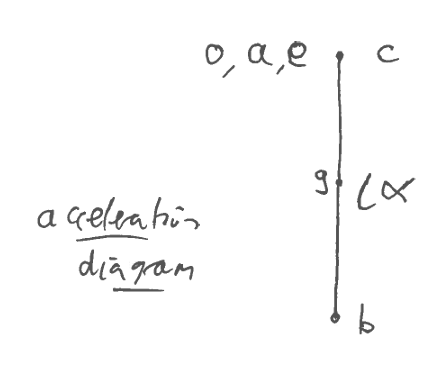 o, a, e c
g α
acceleration
diagram
b